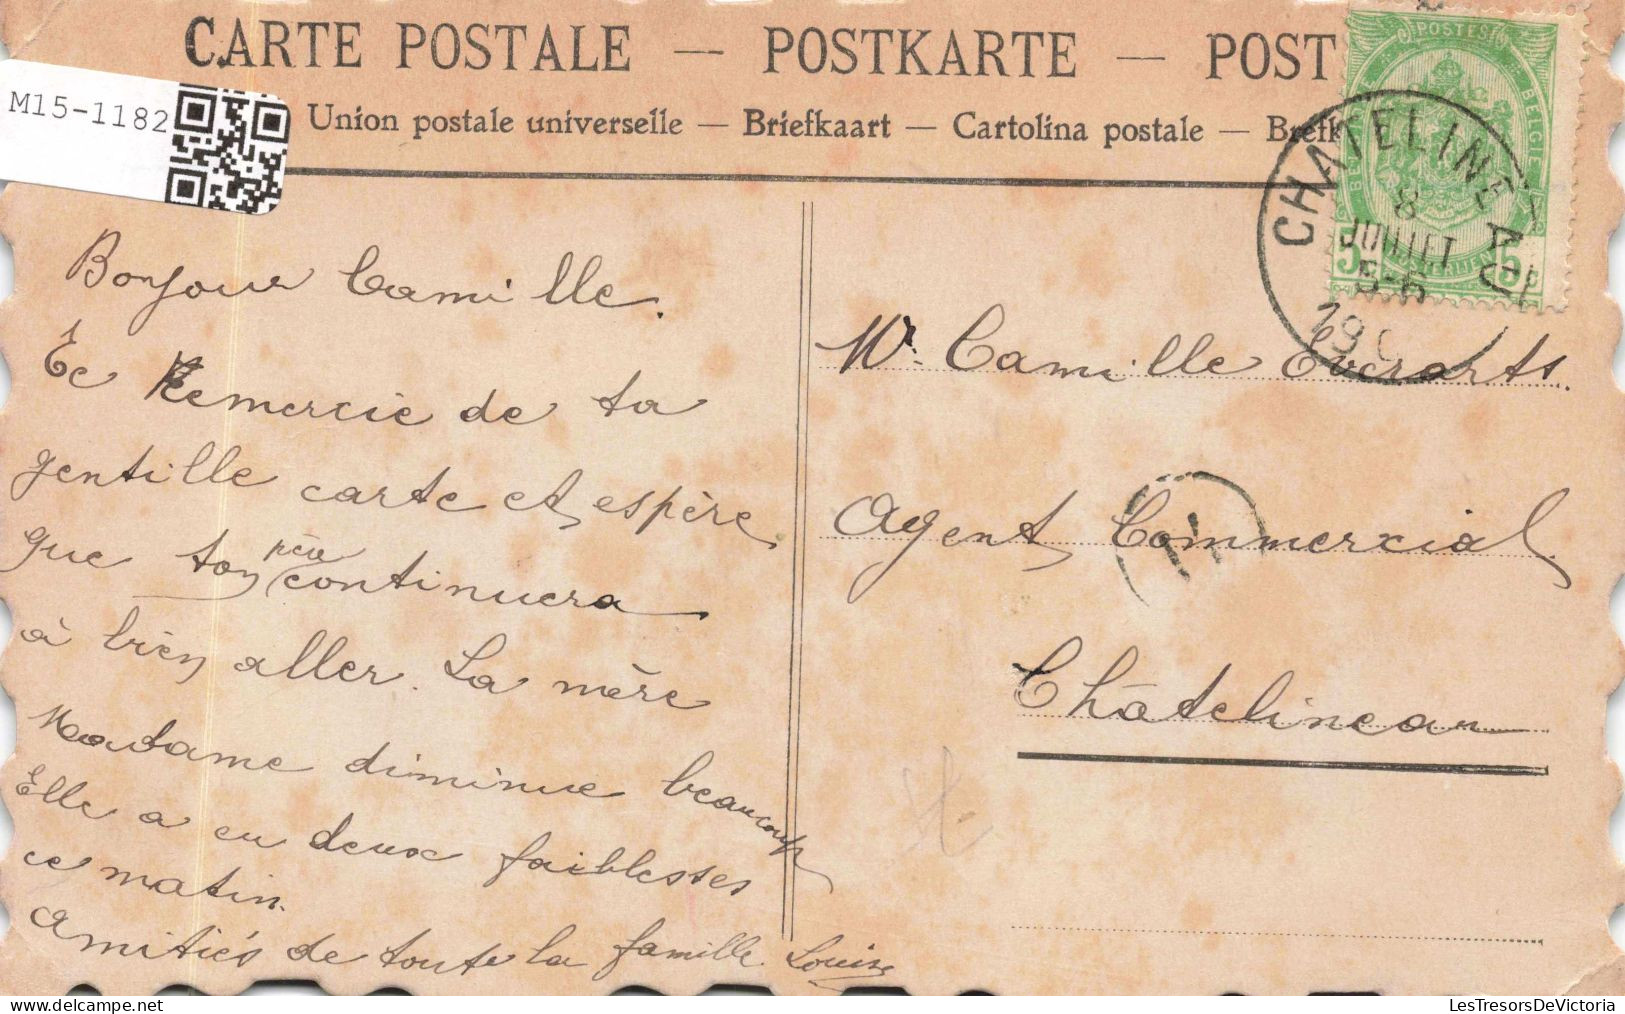 CARTE POSTALE — POSTKARTE — POST
M15-1182
Union postale universelle — Briefkaart — Cartolina postale — Brefk
POSTES
BELGIE
5 5
CHATELINEAU
8
JUILLET
5-6
190
Bonjour Camille.
Te Remercie de ta
gentille carte et espère
que ton père continuera
à bien aller. La mère
Madame diminue beaucoup
Elle a eu deux faiblesses
ce matin.
Amitiés de toute la famille. Louise
Mr. Camille Everarts.
Agent Commercial
Châtelineau
LesTresorsDeVictoria